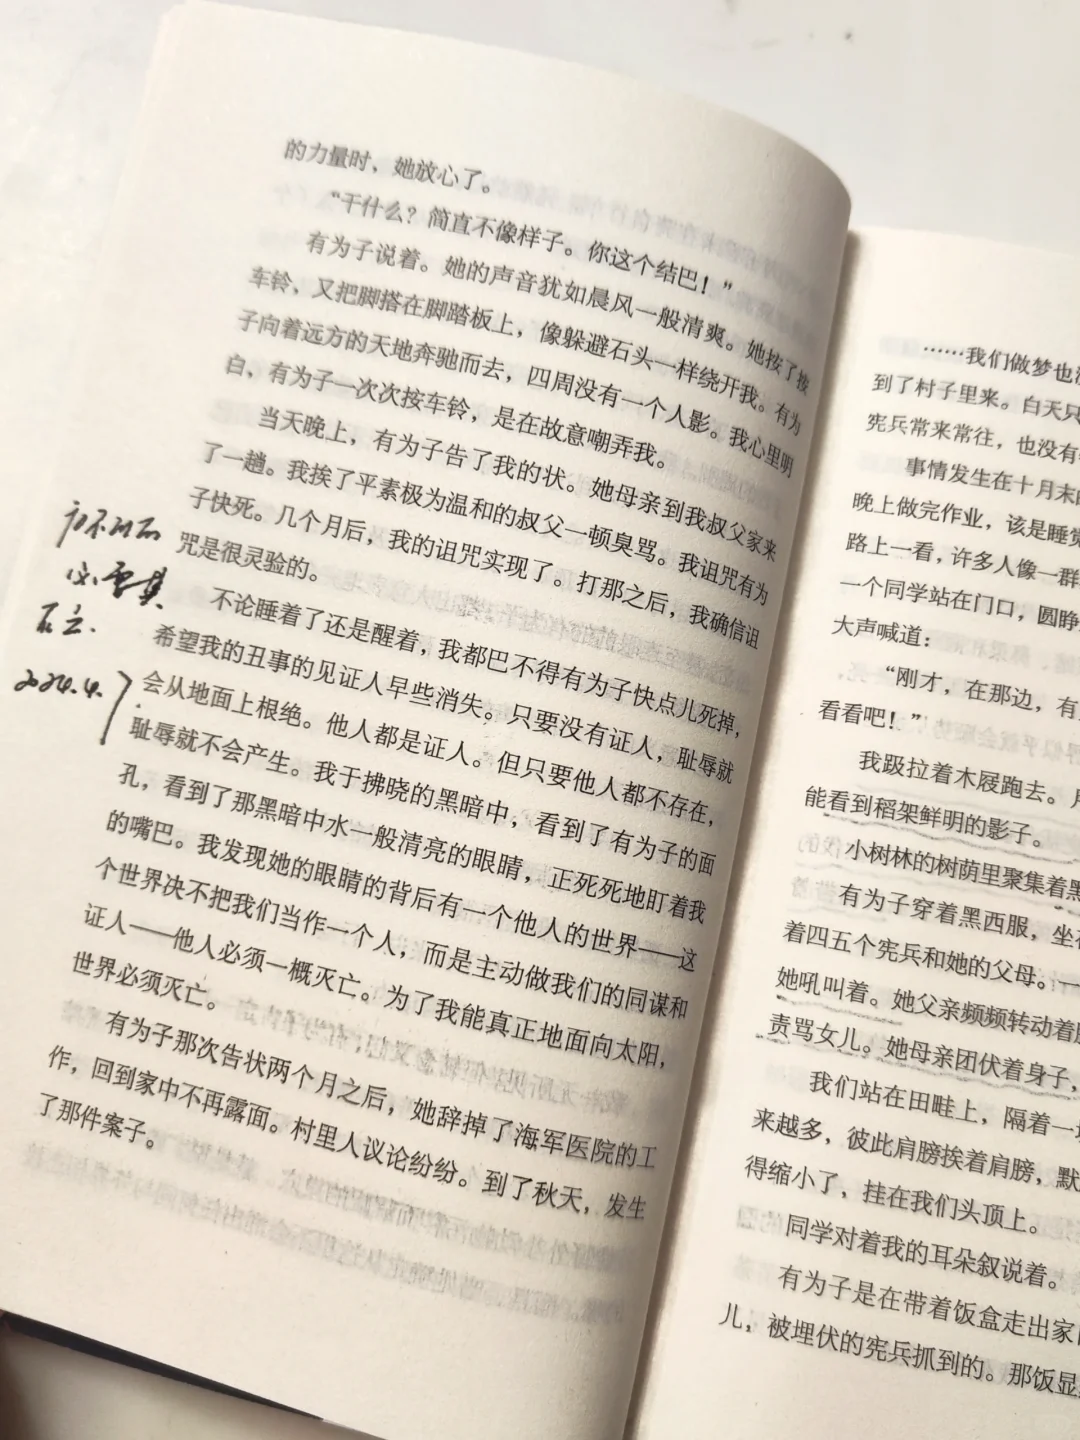 的力量时，她放心了。
“干什么？简直不像样子。你这个结巴！”
有为子说着。她的声音犹如晨风一般清爽。她按了按
车铃，又把脚搭在脚踏板上，像躲避石头一样绕开我。有为
子向着远方的天地奔驰而去，四周没有一个人影。我心里明
白，有为子一次次按车铃，是在故意嘲弄我。
当天晚上，有为子告了我的状。她母亲到我叔父家来
了一趟。我挨了平素极为温和的叔父一顿臭骂。我诅咒有为
子快死。几个月后，我的诅咒实现了。打那之后，我确信诅
咒是很灵验的。
不论睡着了还是醒着，我都巴不得有为子快点儿死掉，
希望我的丑事的见证人早些消失。只要没有证人，耻辱就
会从地面上根绝。他人都是证人。但只要他人都不存在，
耻辱就不会产生。我于拂晓的黑暗中，看到了有为子的面
孔，看到了那黑暗中水一般清亮的眼睛，正死死地盯着我
的嘴巴。我发现她的眼睛的背后有一个他人的世界——这
个世界决不把我们当作一个人，而是主动做我们的同谋和
证人——他人必须一概灭亡。为了我能真正地面向太阳，
世界必须灭亡。
有为子那次告状两个月之后，她辞掉了海军医院的工
作，回到家中不再露面。村里人议论纷纷。到了秋天，发生
了那件案子。
2024.4.
……我们做梦也
到了村子里来。白天只
宪兵常来常往，也没有
事情发生在十月末
晚上做完作业，该是睡觉
路上一看，许多人像一群
一个同学站在门口，圆睁
大声喊道：
“刚才，在那边，有
看看吧！”
我趿拉着木屐跑去。
能看到稻架鲜明的影子。
小树林的树荫里聚集着黑
有为子穿着黑西服，坐在
着四五个宪兵和她的父母。
她吼叫着。她父亲频频转动着
责骂女儿。她母亲团伏着身子，
我们站在田畦上，隔着一
来越多，彼此肩膀挨着肩膀，默
得缩小了，挂在我们头顶上。
同学对着我的耳朵叙说着。
有为子是在带着饭盒走出家
儿，被埋伏的宪兵抓到的。那饭显